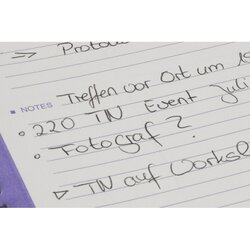 → Proto
NOTES
Treffen vor Ort um
• 220 TN Event Juli
• Fotograf?
▷ TN auf Works